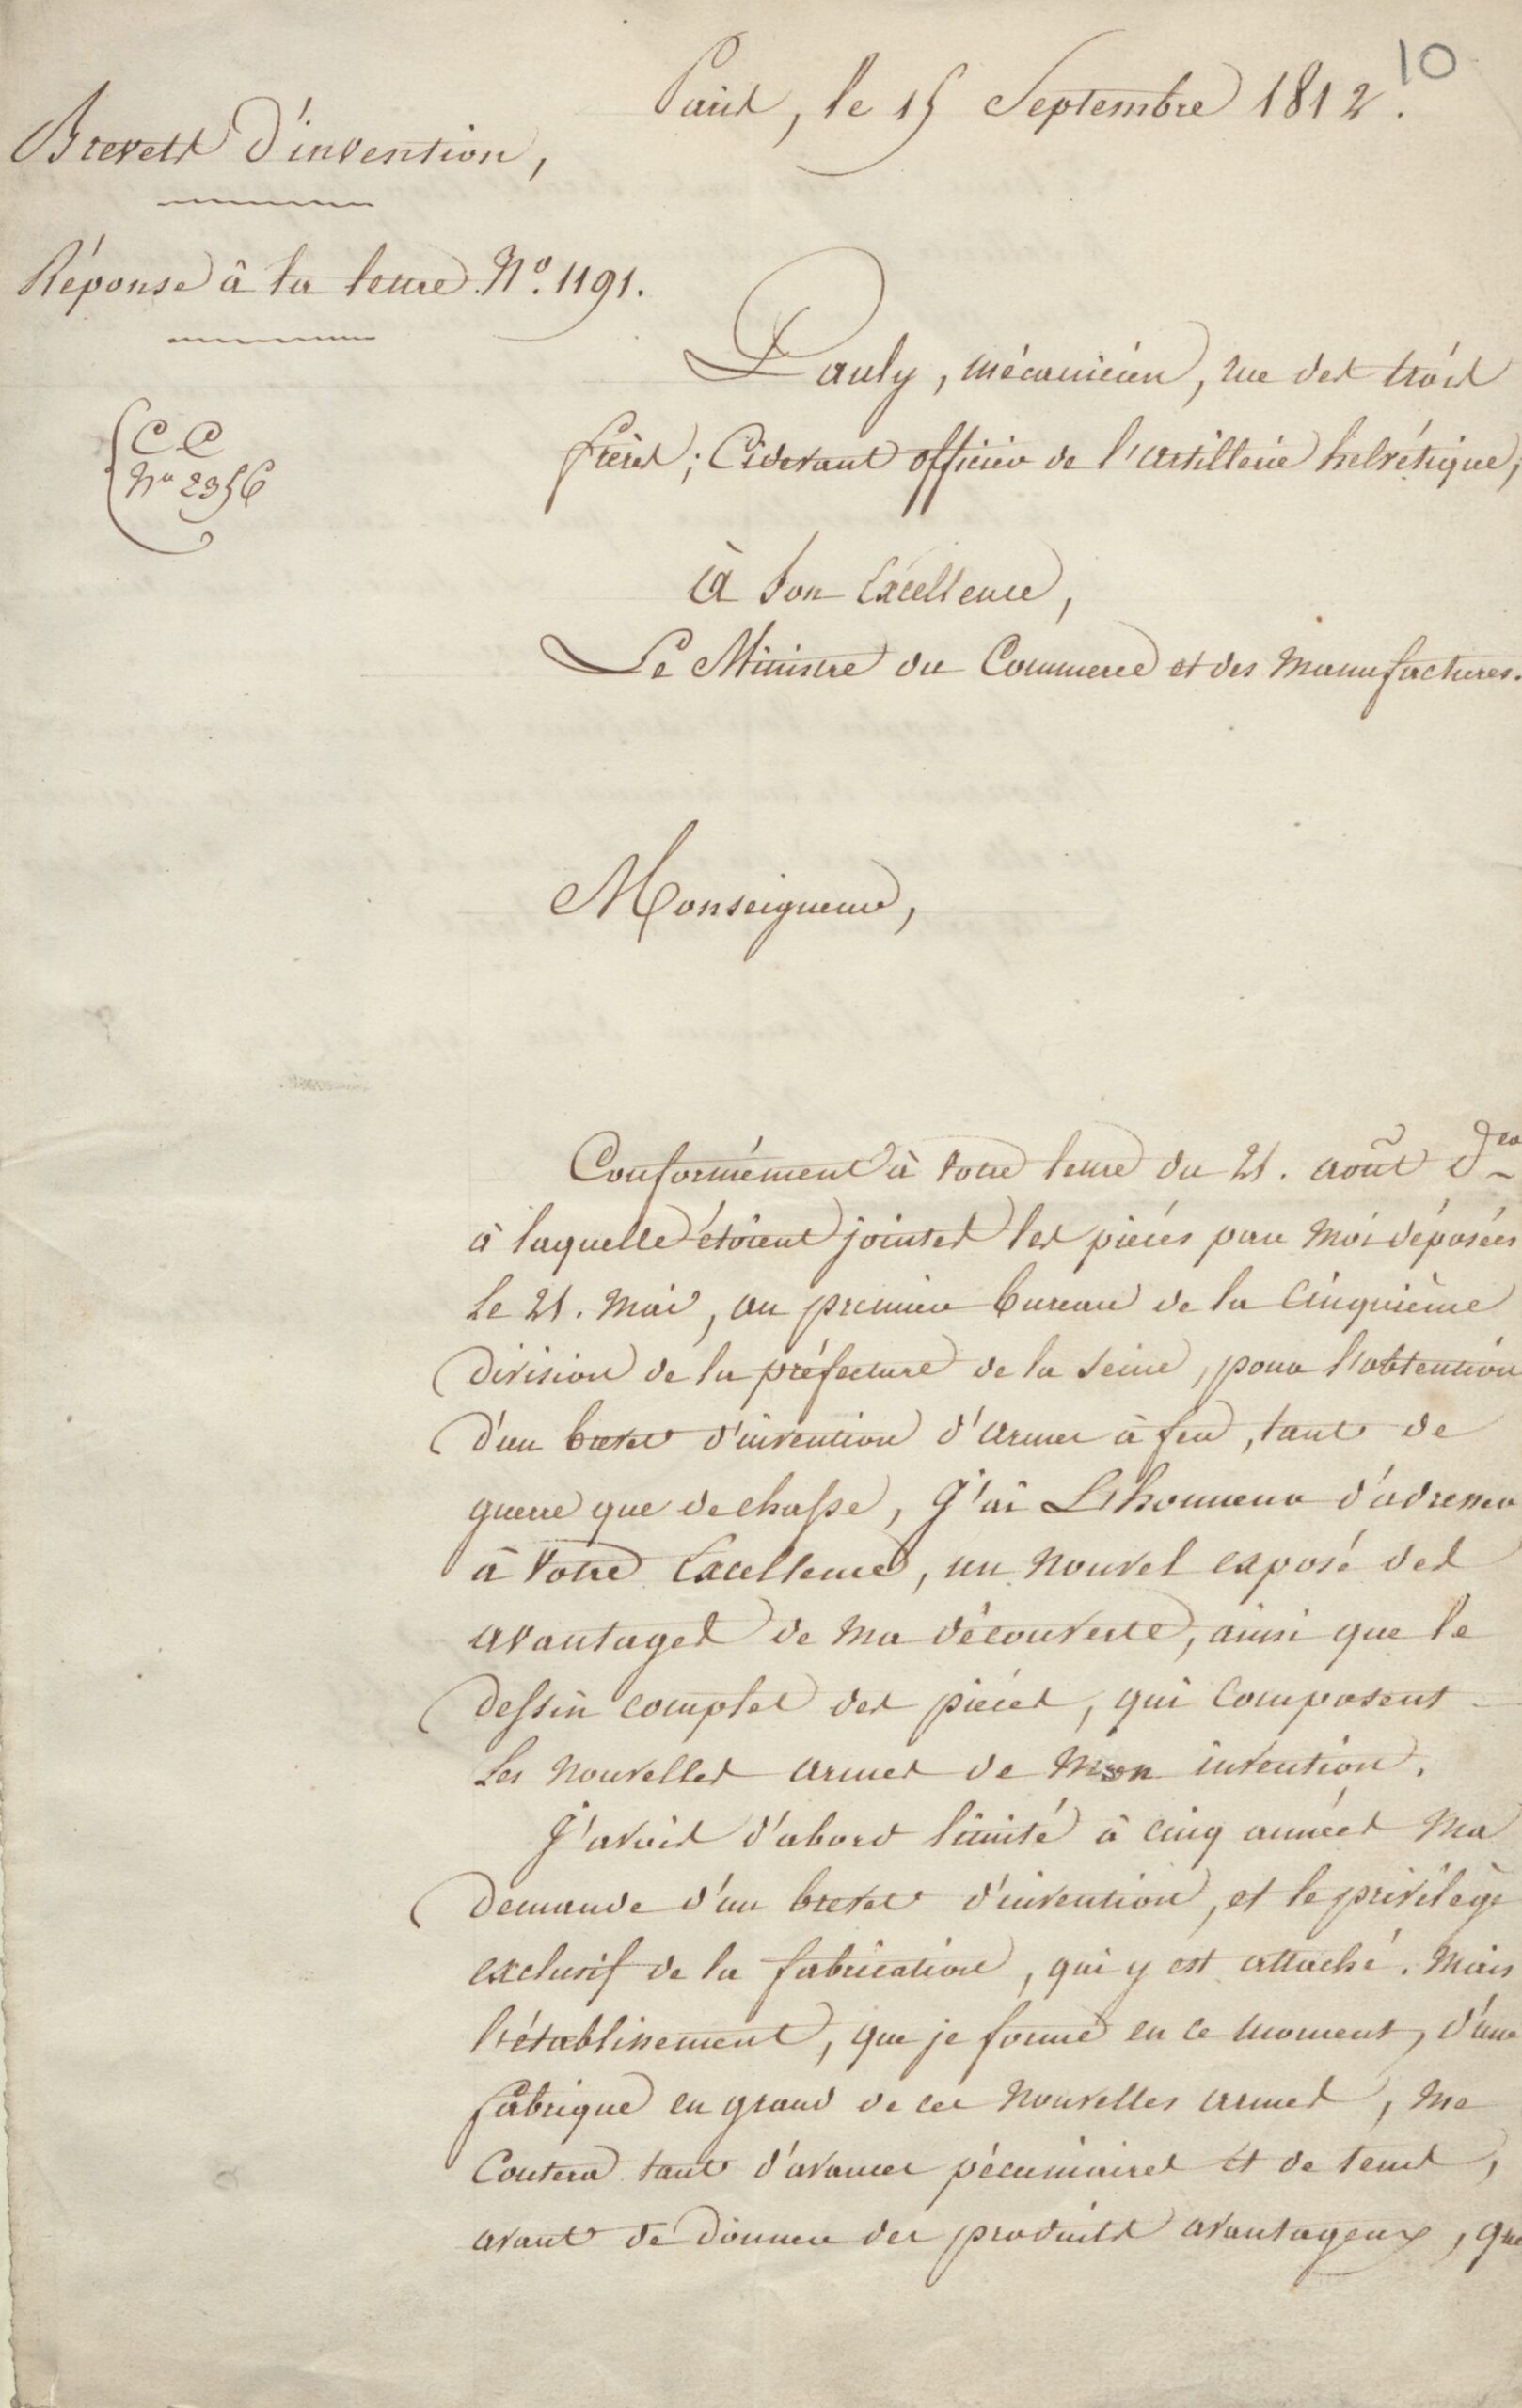 10
Paris, le 15 Septembre 1812.
Brevets d'invention,
Réponse à la lettre N.º 1191.
Pauly, mécanicien, rue des trois
frères; Cidevant officier de l'artillerie helvétique,
C C
Nº 2356
à Son Excellence,
Le Ministre du Commerce et des Manufactures.
Monseigneur,
Conformément à votre lettre du 21. août d.er
à laquelle étoient jointes les pièces par moi déposées
le 21. Mai, au premier bureau de la Cinquième
division de la préfecture de la Seine, pour l'obtention
d'un brevet d'invention d'armes à feu, tant de
guerre que de chasse, J'ai L'honneur d'adresser
à Votre Excellence, un nouvel exposé des
avantages de ma découverte, ainsi que le
dessin complet des pièces, qui composent
les nouvelles armes de mon invention.
J'avois d'abord limité à cinq années ma
demande d'un brevet d'invention, et le privilège
exclusif de la fabrication, qui y est attaché. Mais
l'établissement, que je forme en ce moment, d'une
fabrique en grand de ces nouvelles armes, me
Coutera tant d'avances pécuniaires et de tems,
avant de donner des produits avantageux, que